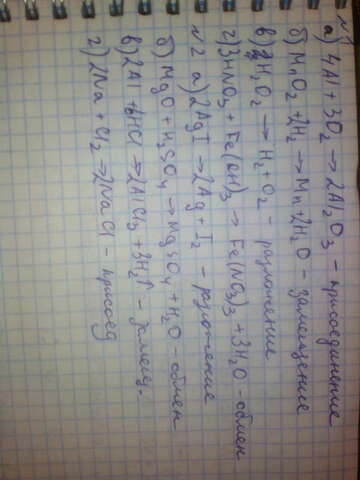 №1
а) 4Al + 3O2 → 2Al2O3 - присоединение
б) MnO2 + 2H2 → Mn + 2H2O - замещение
в) H2O2 → H2 + O2 - разложение
г) 3HNO3 + Fe(OH)3 → Fe(NO3)3 + 3H2O - обмен
№2 а) 2AgI → 2Ag + I2 - разложение
б) MgO + H2SO4 → MgSO4 + H2O - обмен
в) 2Al + 6HCl → 2AlCl3 + 3H2↑ - замещ.
г) 2Na + Cl2 → 2NaCl - присоед